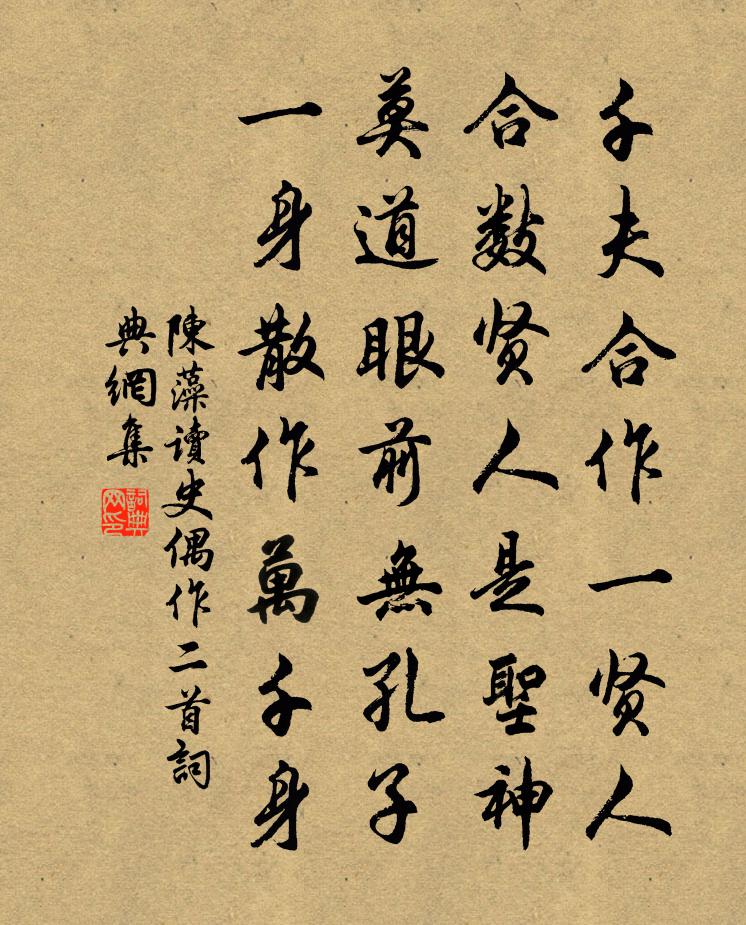 千夫合作一贤人
合数贤人是聖神
莫道眼前無孔子
一身散作萬千身
陳藻讀史偶作二首詞
典網集
詞典
网印